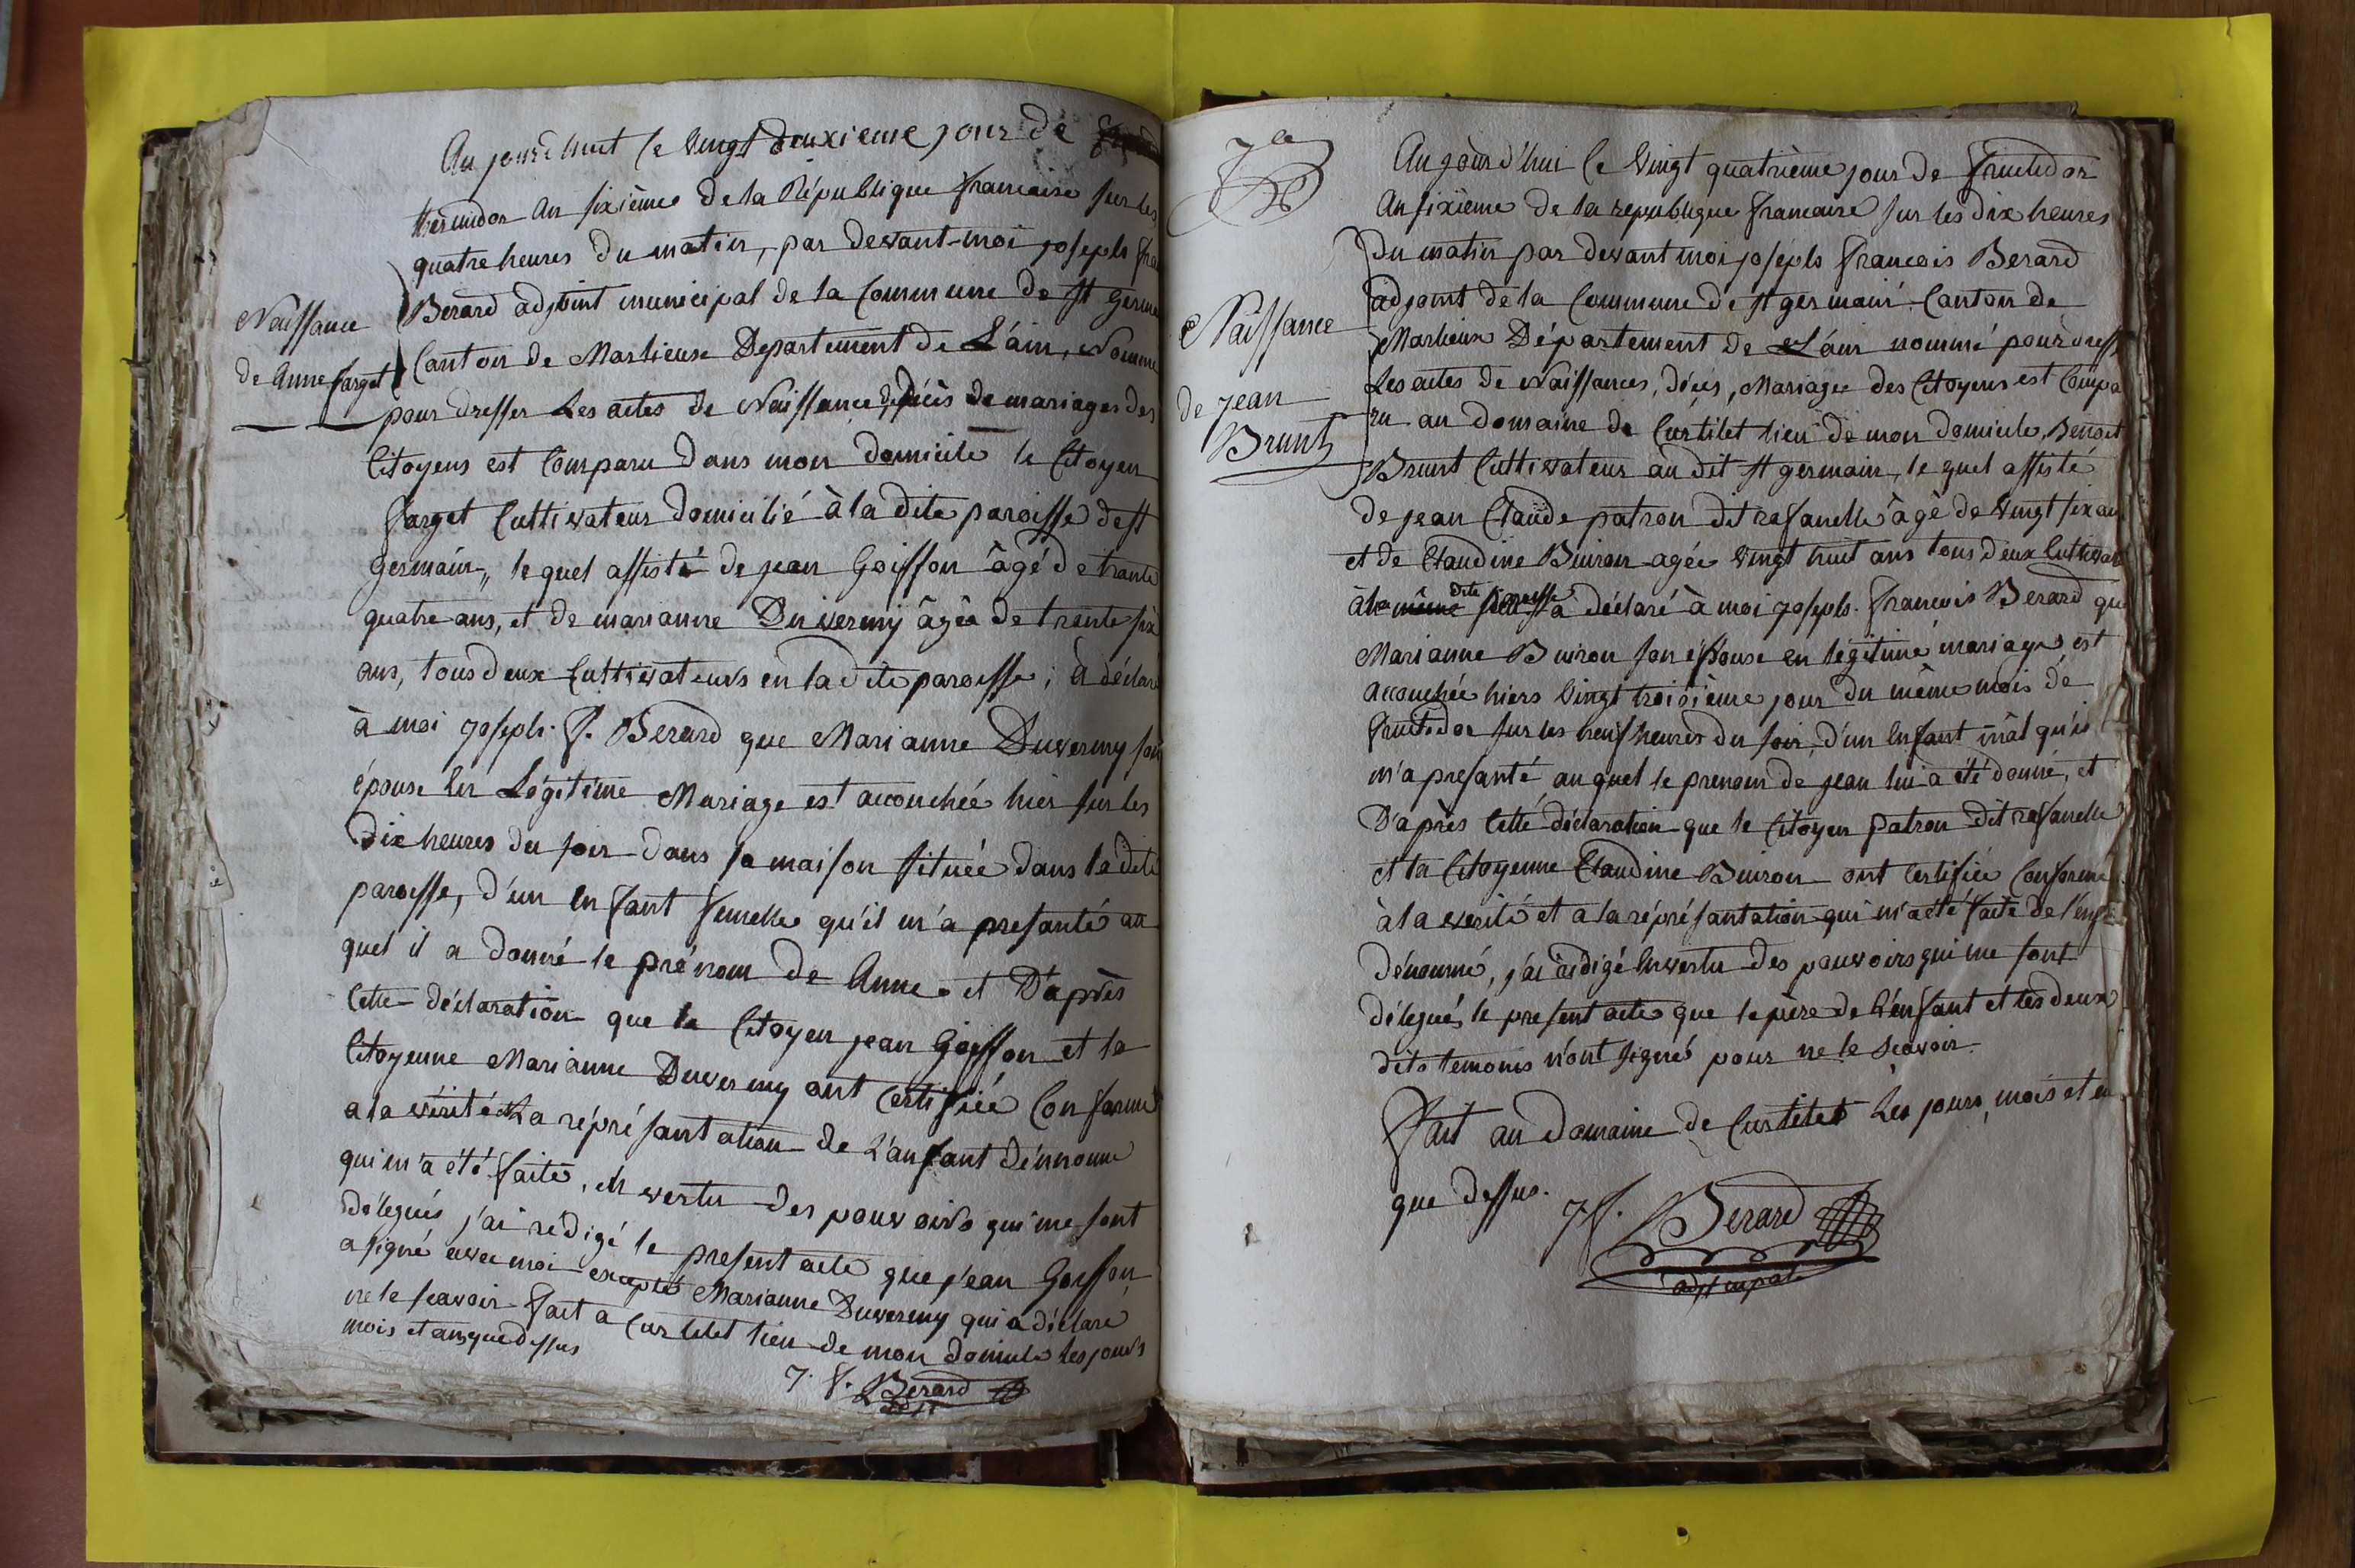 Au jourd'huit le vingt deuxieme jour de
thermidor an sixième de la République francaise sur les
quatre heures du matin, par devant-moi joseph fra
Berard adjoint municipal de la Commune de st germa
Canton de Marlieux Departement de L'ain, Nommé
pour dresser Les actes de Naissance, décès de mariages des
Citoyens est Comparu dans mon domicile le Citoyen
farget Cultivateur domicilié à la dite paroisse de st
germain, le quel assisté de jean Goiffon âgé de trante
quatre ans, et de marianne Duvermy âgée de trente six
ans, tous deux Cultivateurs en la dite paroisse; a déclaré
à moi joseph. f. Berard que Marianne Duvermy son
épouse en Légitime Mariage est accouchée hier sur les
dix heures du soir dans sa maison située dans la dite
paroisse, d'un enfant femelle qu'il m'a presanté au
quel il a donné le prénom de Anne et D'après
Cette déclaration que le Citoyen jean Goiffon et la
Citoyenne Marianne Duvermy ont certifiée Conforme
a la vérité et La réprésantation de L'anfant dénnomé
qui m'a été faite, en vertu des pouvoirs qui me sont
délegués j'ai rédigé le present acte que jean Goiffon
a signé avec moi excepté Marianne Duvermy qui a déclaré
ne le scavoir fait a Curtilet lieu de mon domicile les jours
mois et an que dessus
J. f. Berard
adjt
Naissance
de Anne farget
Naissance
de jean
Brunt
Au jourd'hui le vingt quatrième jour de fructidor
An sixième de la republique francaise sur les dix heures
du matin par devant moi joseph francois Berard
adjoint de la Commune de st germain Canton de
Marlieux Département de L'ain nommé pour dress
Les actes de Naissances, décès, Mariage des Citoyens est Compa
ru au domaine de Curtilet lieu de mon domicile, Benoit
Brunt Cultivateur au dit st germain, le quel assisté
de jean Claude patron dit rafanelle âgé de vingt six an
et de Claudine Buiron agée vingt huit ans tous deux Cultivat
à la dite paroisse a déclaré à moi joseph. francois Berard qu
Marianne Buiron son épouse en légitime mariage est
accouchée hiers vingt troisième jour du même mois de
fructidor sur les neuf heures du soir, d'un enfant mâl qu'il
m'a presanté au quel le prenom de jean lui a été donné, et
D'après Cette déclaration que le Citoyen patron dit rafanelle
et la Citoyenne Claudine Buiron ont certifiée Conforme
à la verité et a la réprésantation qui m'a été faite de l'enfa
dénommé, j'ai redigé en vertu des pouvoirs qui me sont
délegués le present acte que le père de L'enfant et les deux
dits temoins n'ont signés pour ne le scavoir.
Fait au domaine de Curtilet Les jours, mois et an
que dessus.
J f. Berard